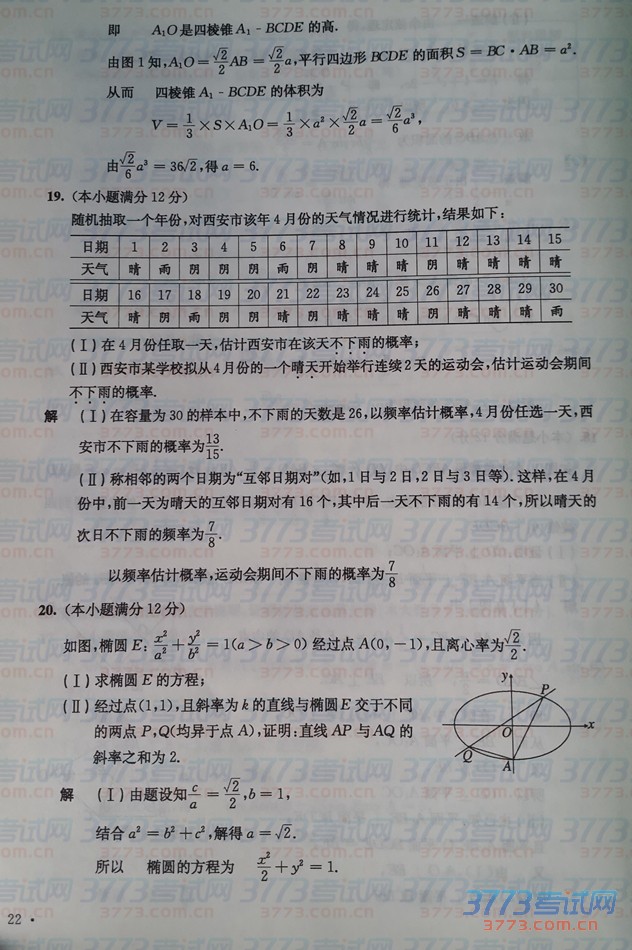 即 A₁O是四棱锥A₁-BCDE的高.
由图1知,A₁O=√2/2 AB=√2/2 a,平行四边形BCDE的面积S=BC·AB=a².
从而 四棱锥A₁-BCDE的体积为
V=1/3×S×A₁O=1/3×a²×√2/2 a=√2/6 a³,
由√2/6 a³=36√2,得a=6.
19.(本小题满分12分)
随机抽取一个年份,对西安市该年4月份的天气情况进行统计,结果如下:
日期 1 2 3 4 5 6 7 8 9 10 11 12 13 14 15
天气 晴 雨 阴 阴 阴 雨 阴 晴 晴 晴 阴 晴 晴 晴 晴
日期 16 17 18 19 20 21 22 23 24 25 26 27 28 29 30
天气 晴 阴 雨 阴 阴 晴 阴 晴 晴 晴 阴 晴 晴 晴 雨
(Ⅰ)在4月份任取一天,估计西安市在该天不下雨的概率;
(Ⅱ)西安市某学校拟从4月份的一个晴天开始举行连续2天的运动会,估计运动会期间
不下雨的概率.
解 (Ⅰ)在容量为30的样本中,不下雨的天数是26,以频率估计概率,4月份任选一天,西
安市不下雨的概率为13/15.
(Ⅱ)称相邻的两个日期为“互邻日期对”(如,1日与2日,2日与3日等).这样,在4月
份中,前一天为晴天的互邻日期对有16个,其中后一天不下雨的有14个,所以晴天的
次日不下雨的频率为7/8.
以频率估计概率,运动会期间不下雨的概率为7/8
20.(本小题满分12分)
如图,椭圆E:x²/a²+y²/b²=1(a>b>0)经过点A(0,-1),且离心率为√2/2.
(Ⅰ)求椭圆E的方程;
(Ⅱ)经过点(1,1),且斜率为k的直线与椭圆E交于不同
的两点P,Q(均异于点A),证明:直线AP与AQ的
斜率之和为2.
y
P
O
x
Q
A
解 (Ⅰ)由题设知c/a=√2/2,b=1,
结合a²=b²+c²,解得a=√2.
所以 椭圆的方程为 x²/2+y²=1.
22·
3773考试网
www.3773.com.cn